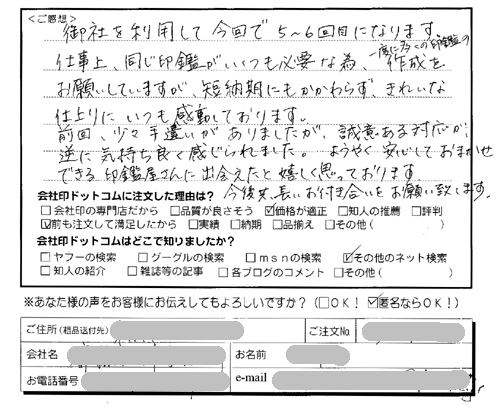 ＜ご感想＞
御社を利用して今回で5～6回目になります。
仕事上、同じ印鑑がいくつも必要な為、一度に多くの印鑑の作成を
お願いしていますが、短納期にもかかわらず、きれいな
仕上りにいつも感動しております。
前回、少々手違いがありましたが、誠意ある対応が、
逆に気持ち良く感じられました。ようやく安心しておまかせ
できる印鑑屋さんに出会えたと嬉しく思っております
今後共、長いお付き合いをお願い致します。
会社印ドットコムに注文した理由は？
□会社印の専門店だから □品質が良さそう ☑価格が適正 □知人の推薦 □評判
☑前も注文して満足したから □実績 □納期 □品揃え □その他（ ）
会社印ドットコムはどこで知りましたか？
□ヤフーの検索 □グーグルの検索 □msnの検索 ☑その他のネット検索
□知人の紹介 □雑誌等の記事 □各ブログのコメント □その他（ ）
※あなた様の声をお客様にお伝えしてもよろしいですか？（□OK！ ☑匿名ならOK！）
ご住所（粗品送付先） ご注文No
会社名 お名前
お電話番号 e-mail